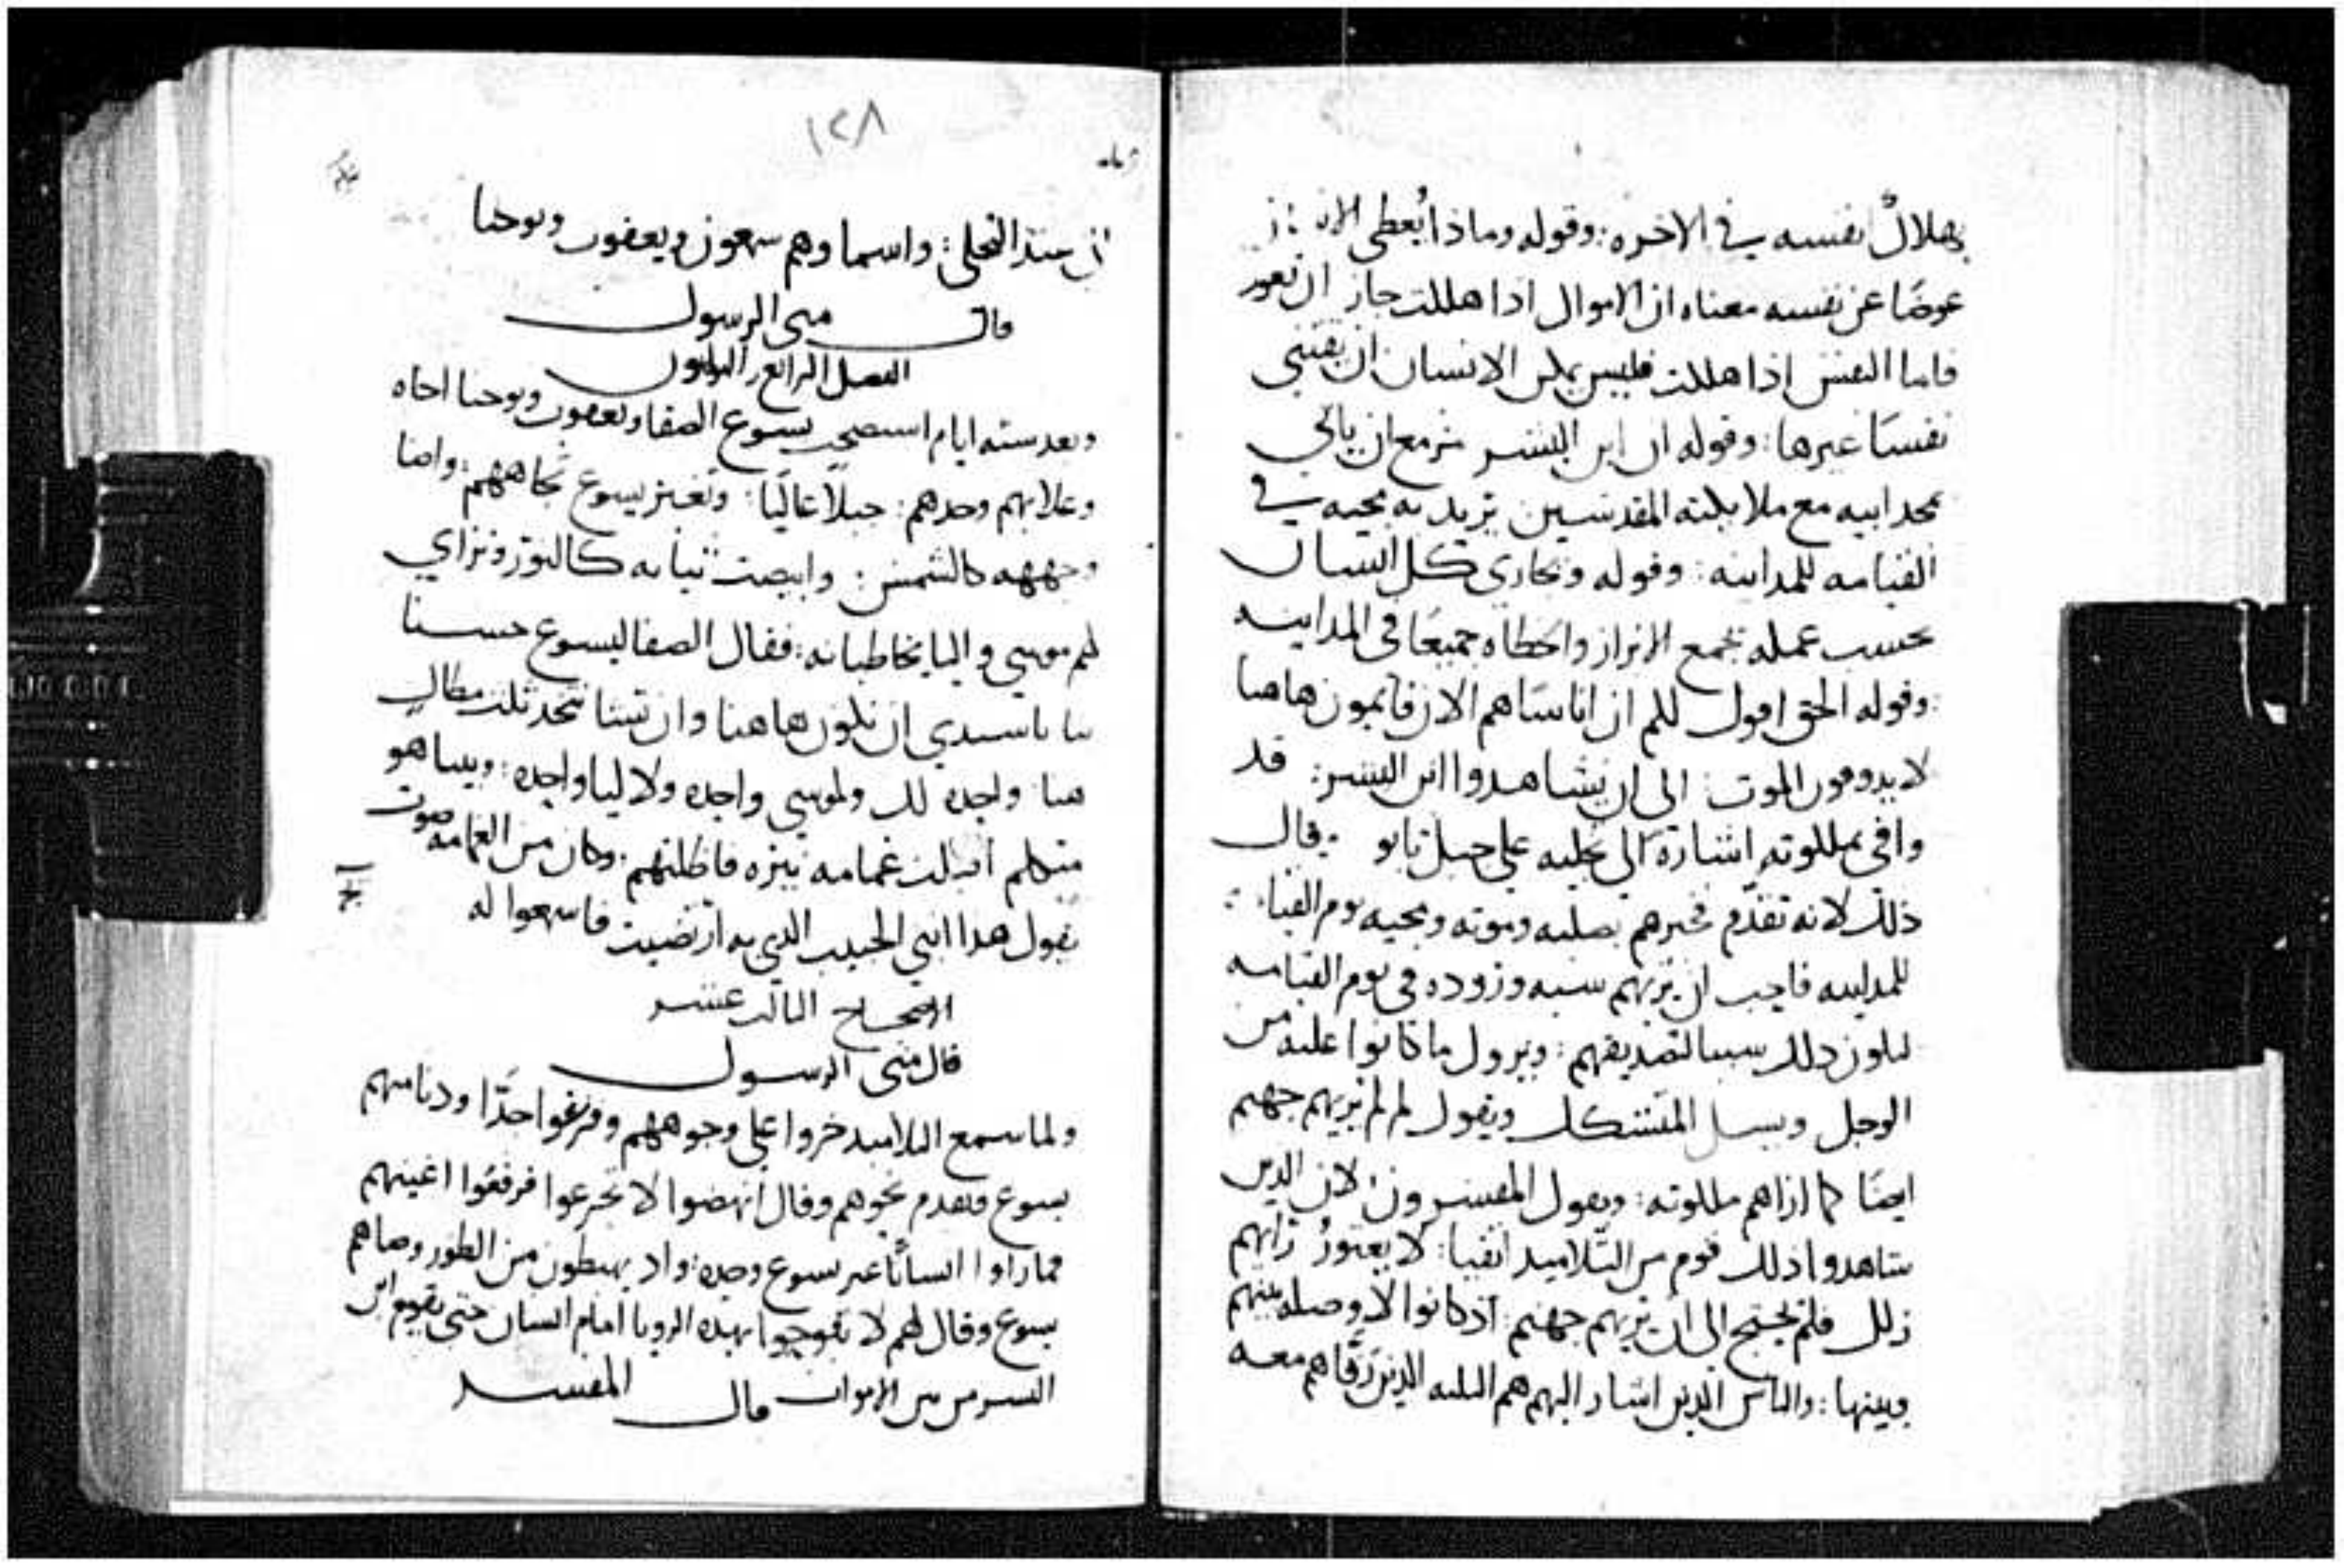 بهلاك نفسه في الاخره: وقوله وماذا يُعطى
عوضًا عن نفسه معناه ان الاموال اذا هلكت جاز ان تعود
فاما النفس اذا هلكت فليس يمكن الانسان ان يقتني
نفسًا غيرها: وقوله ان ابن البشر مزمع ان ياتي
بمجد ابيه مع ملايكته المقدسين يريد به مجيه في
القيامه للمداينه: وقوله ويجازي كل انسان
بحسب عمله بجمع الابرار والخطاه جميعًا في المداينه
: وقوله الحق اقول لكم ان اناسًا هم الان قايمون هاهنا
لا يدوقون الموت: الى ان يشاهدوا ابن البشر: قد
وافى بملكوته اشارة الى تجليه على جبل تابو : وقال
ذلك لانه تقدّم فخبرهم بصلبه وموته ومجيه يوم القيا
للمداينه فاحب ان يريهم وروده في يوم القيامه
ليكون ذلك سببا لتصديقهم: ويزول ما كانوا عليه من
الوجل ويسل المتشكك ويقول لم لم يريهم جهنم
ايضًا كما اراهم ملكوته: ويقول المفسرون لان الدين
شاهدوا ذلك قوم من التلاميد اتقيا: لا يعتور رايهم
زلل فلم يحتج الى ان يريهم جهنم: اذ كانوا لا وصله بينهم
وبينها: والناس الذين اشار اليهم هم التلته الذين رقاهم معه
١٢٨
عند التجلي: واسماوهم سمعون ويعقوب ويوحنا
قال متى الرسول
الفصل الرابع والتلاتون
وبعد سته ايام استصحب يسوع الصفا ويعقوب ويوحنا اخاه
وعلا بهم وحدهم: جبلاً عاليًا: وتغير يسوع تجاههم: واضا
وجهه كالشمس: وابيضت تيابه كالنور وتراي
لهم موسي واليا يخاطبانه: فقال الصفا ليسوع حسنا
بنا يا سيدي ان نكون هاهنا وان تشا نتخد تلت مظال
هنا واحده لك ولموسي واحده ولاليا واحده: وبينا هو
متكلم اقبلت غمامه نيره فاظلتهم: وكان من الغمامه صوت
يقول هدا ابني الحبيب الدي به ارتضيت فاسمعوا له
الاصحاح التالت عشر
قال متى الرسول
ولما سمع التلاميد خروا على وجوههم وفزعوا جدًا ودنا منهم
يسوع وتقدم نحوهم وقال انهضوا لا تجزعوا فرفعوا اعينهم
فما راوا انسانًا غير يسوع وحده: واد يهبطون من الطور وصاهم
يسوع وقال لهم لا تفوهوا بهده الرويا امام انسان حتى يقوم ابن
البشر من بين الاموات قال المفسر